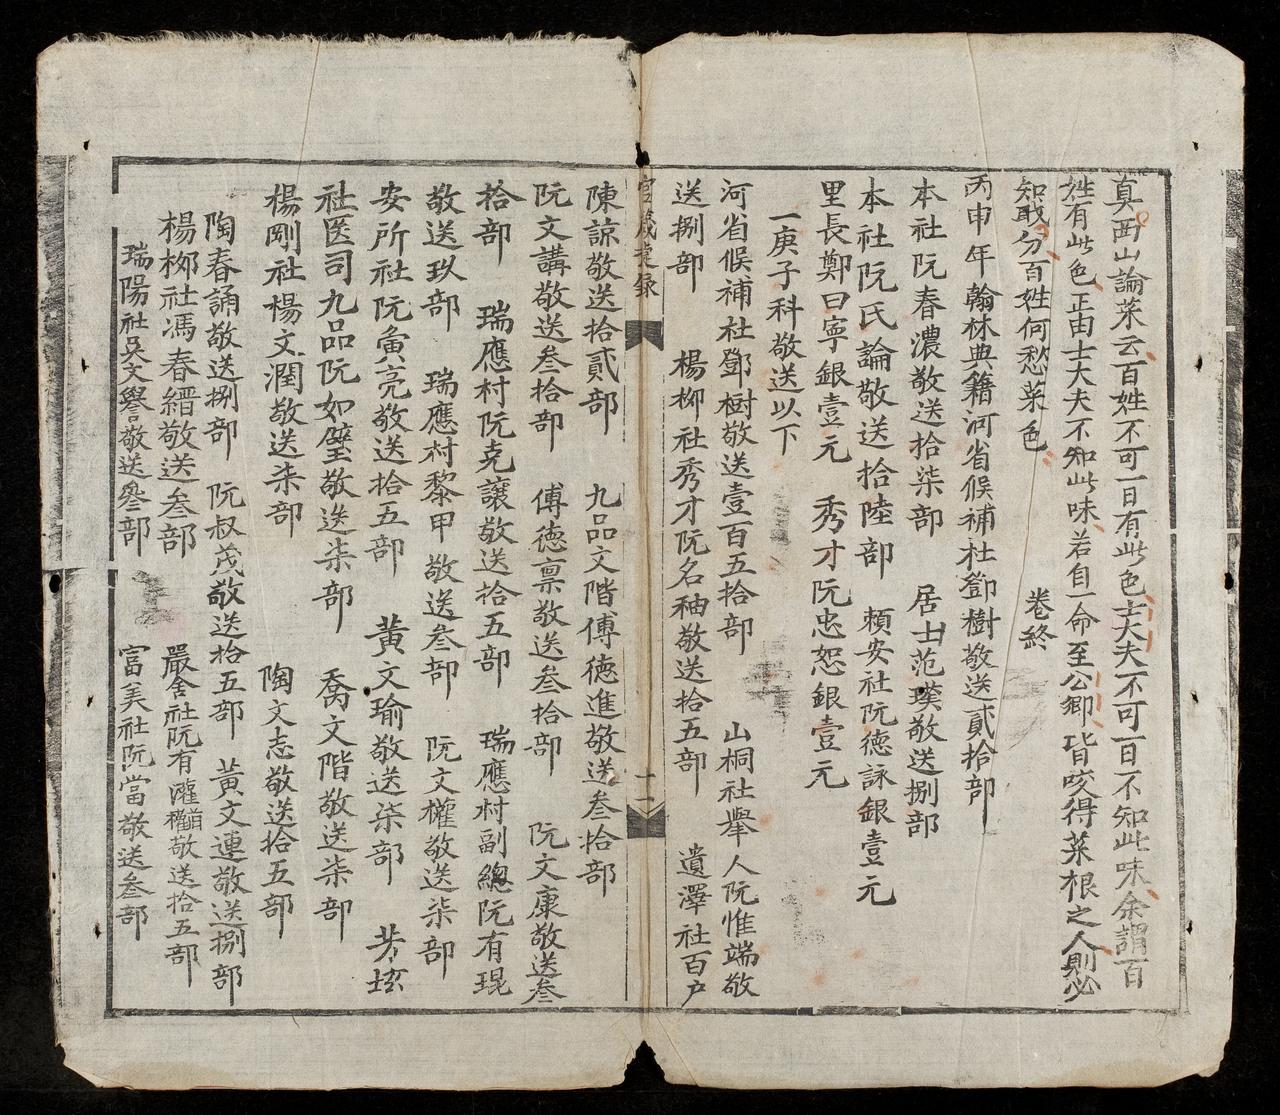 真西山論菜云百姓不可一日有此色士大夫不可一日不知此味余謂百
姓有此色正由士大夫不知此味若自一命至公卿皆咬得菜根之人則必
知職分百姓何愁菜色 卷終
丙申年翰林典籍河省候補杜鄧樹敬送貳拾部
本社阮春濃敬送拾柒部 居士范璞敬送捌部
本社阮氏論敬送拾陸部 賴安社阮德詠銀壹元
里長鄭曰寧銀壹元 秀才阮忠恕銀壹元
一庚子科敬送以下
河省候補杜鄧樹敬送壹百五拾部 山桐社舉人阮惟端敬
送捌部 楊柳社秀才阮名秞敬送拾五部 遺澤社百户
官箴捷録 十二
陳諒敬送拾貳部 九品文階傅德進敬送叁拾部
阮文講敬送叁拾部 傅德禀敬送叁拾部 阮文康敬送叁
拾部 瑞應村阮克讓敬送拾五部 瑞應村副總阮有琨
敬送玖部 瑞應村黎甲敬送叁部 阮文權敬送柒部
安所社阮寅亮敬送拾五部 黄文瑜敬送柒部
社医司九品阮如璧敬送柒部 喬文階敬送柒部
楊剛社楊文潤敬送柒部 陶文志敬送拾五部
陶春誦敬送捌部 阮叔茂敬送拾五部 黄文連敬送捌部
楊柳社馮春縉敬送叁部 嚴舍社阮有敬送拾五部
瑞陽社吳文譽敬送叅部 富美社阮當敬送叁部